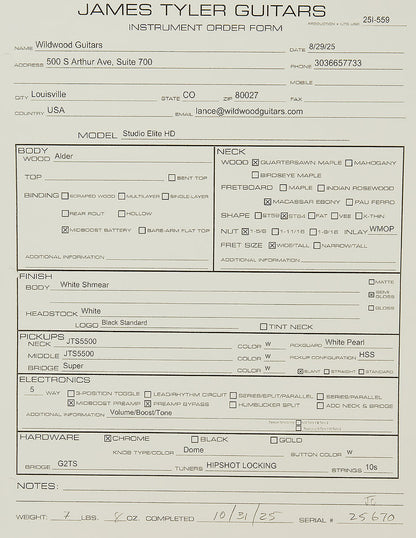 JAMES TYLER GUITARS
INSTRUMENT ORDER FORM
PRODUCTION • LTS USE: 25I-559
NAME Wildwood Guitars DATE 8/29/25
ADDRESS 500 S Arthur Ave, Suite 700 PHONE 3036657733
MOBILE
CITY Louisville STATE CO ZIP 80027 FAX
COUNTRY USA EMAIL lance@wildwoodguitars.com
MODEL Studio Elite HD
BODY
WOOD Alder
TOP BENT TOP
BINDING SCRAPED WOOD MULTILAYER SINGLE-LAYER
REAR ROUT HOLLOW
MIDBOOST BATTERY BARE-ARM FLAT TOP
ADDITIONAL INFORMATION
NECK
WOOD QUARTERSAWN MAPLE MAHOGANY
BIRDSEYE MAPLE
FRETBOARD MAPLE INDIAN ROSEWOOD
MACASSAR EBONY PAU FERRO
SHAPE ST59 ST64 FAT VEE X-THIN
NUT 1-5/8 1-11/16 1-9/16 INLAY WMOP
FRET SIZE WIDE/TALL NARROW/TALL
ADDITIONAL INFORMATION
FINISH
BODY White Shmear
MATTE
SEMI GLOSS
GLOSS
HEADSTOCK White
LOGO Black Standard TINT NECK
PICKUPS
NECK JTS5500 COLOR W PICKGUARD White Pearl
MIDDLE JTS5500 COLOR W PICKUP CONFIGURATION HSS
BRIDGE Super COLOR W SLANT STRAIGHT STANDARD
ELECTRONICS
5 WAY 3-POSITION TOGGLE LEAD/RHYTHM CIRCUIT SERIES/SPLIT/PARALLEL SERIES/PARALLEL
MIDBOOST PREAMP PREAMP BYPASS HUMBUCKER SPLIT ADD NECK & BRIDGE
ADDITIONAL INFORMATION Volume/Boost/Tone
HARDWARE CHROME BLACK GOLD
KNOB TYPE/COLOR Dome BUTTON COLOR W
BRIDGE G2TS TUNERS HIPSHOT LOCKING STRINGS 10s
NOTES:
WEIGHT: 7 LBS. 8 OZ. COMPLETED 10/31/25 SERIAL # 25670